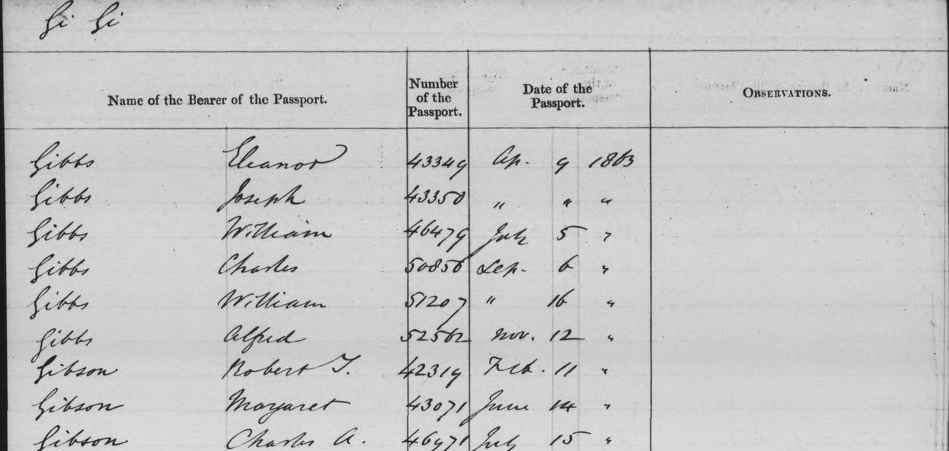 Gi Gi
Name of the Bearer of the Passport. Number of the Passport. Date of the Passport. OBSERVATIONS.
Gibbs Eleanor 43349 Ap. 9 1863
Gibbs Joseph 43350 " " "
Gibbs William 46479 July 5 "
Gibbs Charles 50856 Sep. 6 "
Gibbs William 51207 " 16 "
Gibbs Alfred 52562 Nov. 12 "
Gibson Robert T. 42319 Feb. 11 "
Gibson Margaret 43071 June 14 "
Gibson Charles A. 46971 July 15 "